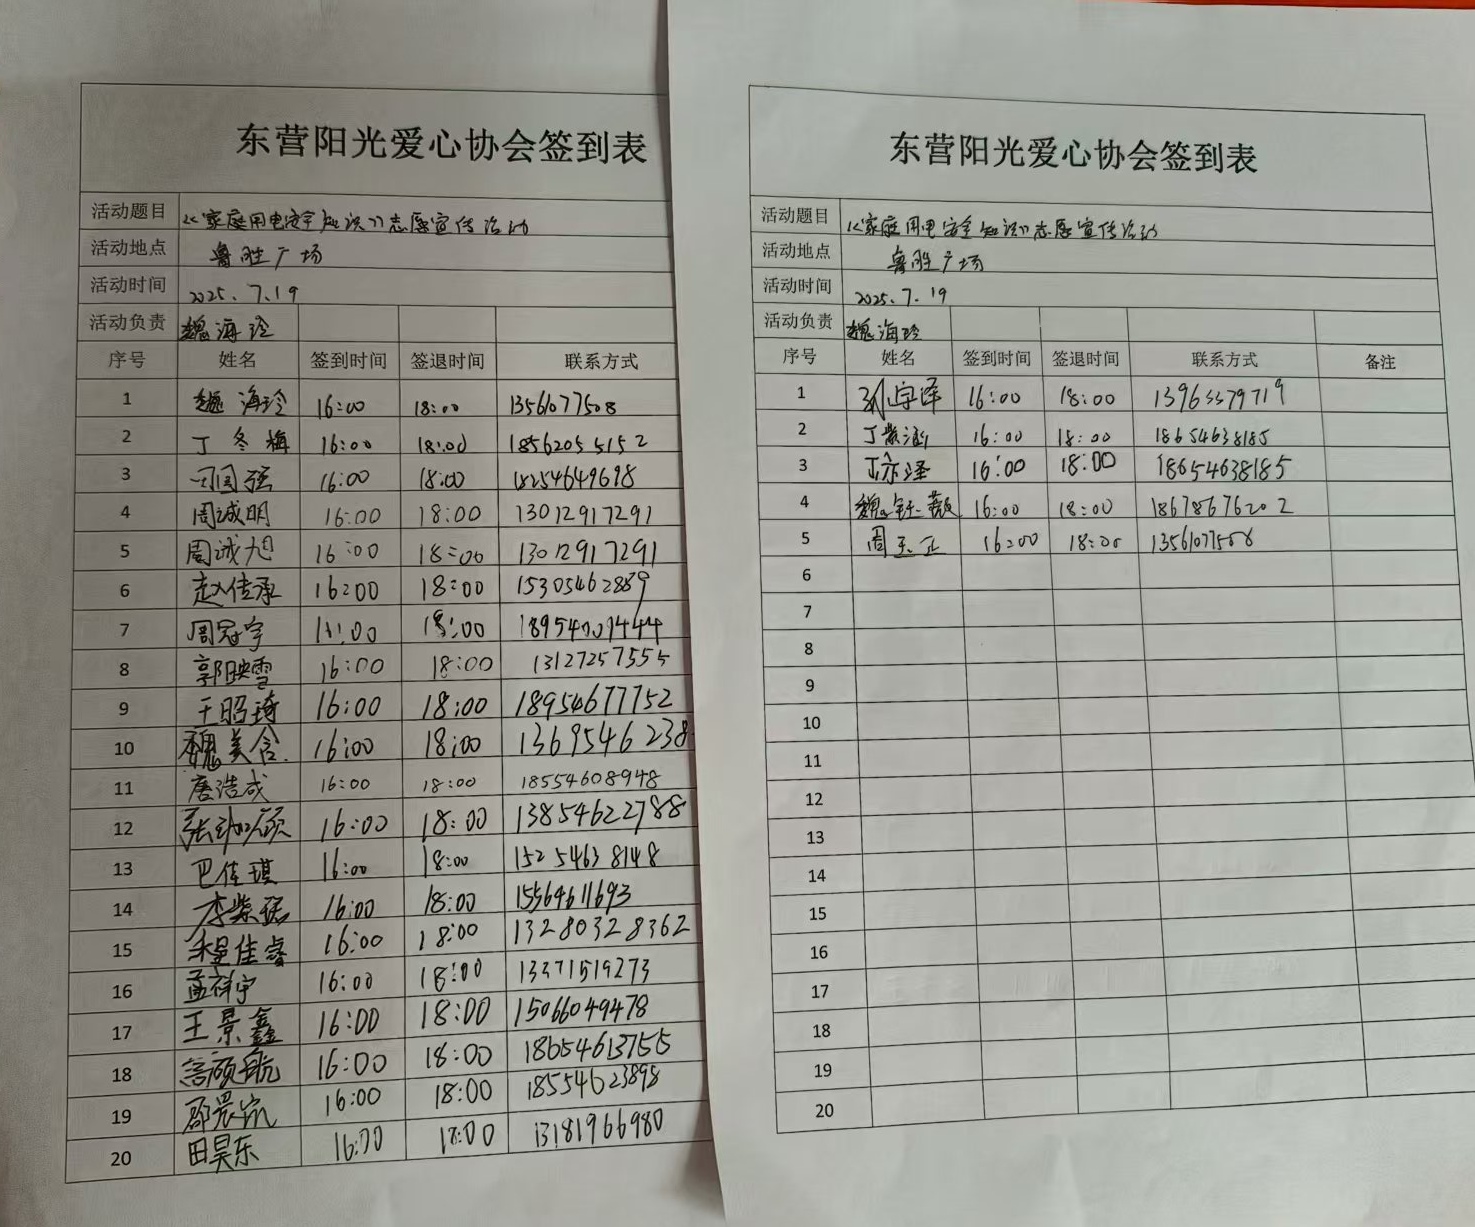 东营阳光爱心协会签到表
活动题目 《家庭用电安全知识》志愿宣传活动
活动地点 鲁胜广场
活动时间 2025.7.19
活动负责 魏海玲
序号 姓名 签到时间 签退时间 联系方式
1 魏海玲 16:00 18:00 13561077508
2 丁冬梅 16:00 18:00 18562055152
3 16:00 18:00 18254649698
4 周诚明 16:00 18:00 13012917291
5 周诚旭 16:00 18:00 13012917291
6 赵传承 16:00 18:00 15305462889
7 周冠宇 16:00 18:00
8 郭映雪 16:00 18:00 13127257555
9 王昭琦 16:00 18:00 18954677752
10 魏美含 16:00 18:00 1369546238
11 唐浩成 16:00 18:00 18554608948
12 16:00 18:00 13854622788
13 巴佳琪 16:00 18:00 15254638148
14 李紫珺 16:00 18:00 15564611693
15 程佳睿 16:00 18:00 13280328362
16 孟祥宇 16:00 18:00 13371519273
17 王景鑫 16:00 18:00 15066049478
18 16:00 18:00 18654613755
19 16:00 18:00 18554623898
20 田昊东 16:00 18:00 13181966980
东营阳光爱心协会签到表
活动题目 《家庭用电安全知识》志愿宣传活动
活动地点 鲁胜广场
活动时间 2025.7.19
活动负责 魏海玲
序号 姓名 签到时间 签退时间 联系方式 备注
1 刘宇泽 16:00 18:00 13965579719
2 丁紫涵 16:00 18:00 18654638185
3 16:00 18:00 18654638185
4 魏钰薇 16:00 18:00 18678676202
5 周玉正 16:00 18:00 13561077508
6
7
8
9
10
11
12
13
14
15
16
17
18
19
20